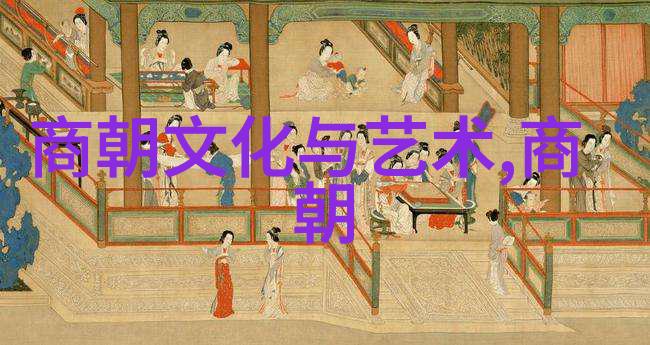 商朝文化与艺术,商
朝